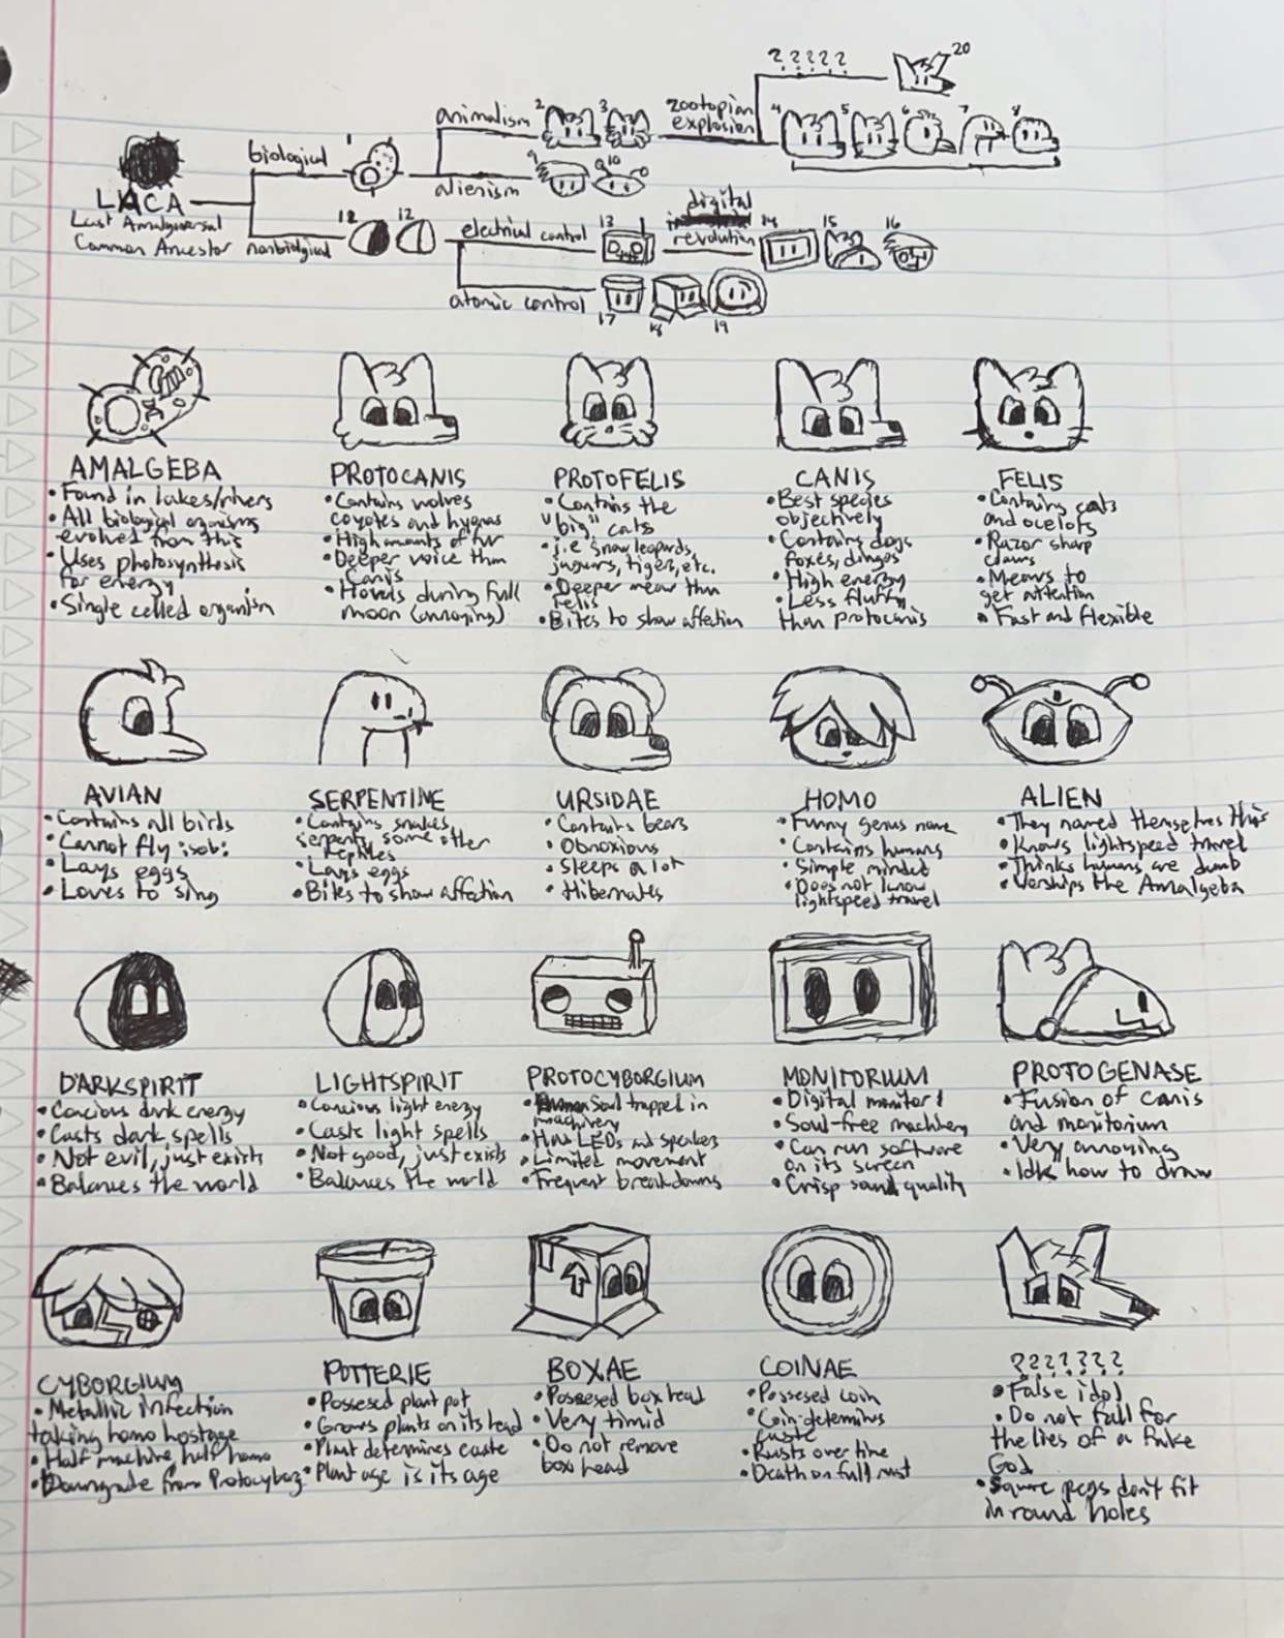 ? ? ? ? ?
20
animalism
2
3
zootopian
explosion
4
5
6
7
8
biological
1
alienism
9
10
LUACA
Last Amalgiversal
Common Ancestor
nonbiological
12
12
electrical control
13
digital
revolution
14
15
16
atomic control
17
18
19
AMALGEBA
• Found in lakes/rivers
• All biological organisms
evolved from this
• Uses photosynthesis
for energy
• Single celled organism
PROTOCANIS
• Contains wolves
coyotes and hyenas
• High amounts of fur
• Deeper voice than
Canis
• Howls during full
moon (annoying)
PROTOFELIS
• Contains the
"big" cats
• i.e snow leopards,
jaguars, tigers, etc.
• Deeper meow than
Felis
• Bites to show affection
CANIS
• Best species
objectively
• Contains dogs
foxes, dingos
• High energy
• Less fluffy
than protocanis
FELIS
• Contains cats
and ocelots
• Razor sharp
claws
• Meows to
get attention
• Fast and flexible
AVIAN
• Contains all birds
• Cannot fly :sob:
• Lays eggs
• Loves to sing
SERPENTINE
• Contains snakes,
serpents, some other
reptiles
• Lays eggs
• Bites to show affection
URSIDAE
• Contains bears
• Obnoxious
• Sleeps a lot
• Hibernates
HOMO
• Funny genus name
• Contains humans
• Simple minded
• Does not know
lightspeed travel
ALIEN
• They named themselves this
• Knows lightspeed travel
• Thinks humans are dumb
• Worships the Amalgeba
DARKSPIRIT
• Concious dark energy
• Casts dark spells
• Not evil, just exists
• Balances the world
LIGHTSPIRIT
• Concious light energy
• Casts light spells
• Not good, just exists
• Balances the world
PROTOCYBORGIUM
• Soul trapped in
machinery
• Has LEDs and speakers
• Limited movement
• Frequent breakdowns
MONITORIUM
• Digital monitor!
• Soul-free machinery
• Can run software
on its screen
• Crisp sound quality
PROTOGENASE
• Fusion of canis
and monitorium
• Very annoying
• Idk how to draw
CYBORGIUM
• Metallic infection
taking homo hostage
• Half machine, half homo
• Downgrade from Protocyborg
POTTERIE
• Possesed plant pot
• Grows plants on its head
• Plant determines caste
• Plant age is its age
BOXAE
• Possesed box head
• Very timid
• Do not remove
box head
COINAE
• Possesed coin
• Coin determines
caste
• Rusts over time
• Death on full rust
? ? ? ? ? ? ?
• False idol
• Do not fall for
the lies of a fake
God
• Square pegs don't fit
in round holes